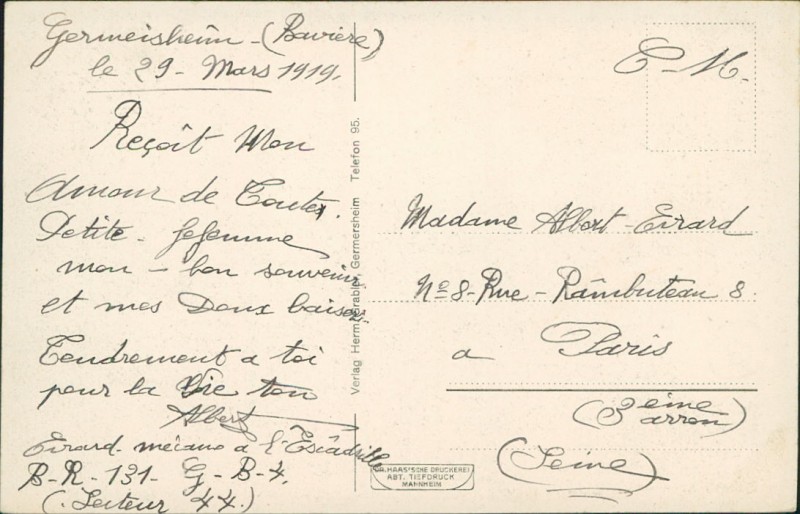 Germeisheim - (Bavière)
le 29 - Mars 1919.
Reçoit Mon
Amour de Toute
Petite - fefemme
mon - bon souvenir
et mes Doux baiser
Tendrement a toi
pour la Vie ton
Albert
Eirard - mécano a l'Escâdrille
B - R - 131 - G - B - 4.
(Secteur 44.)
Verlag Germersheim Telefon 95.
GR. HAAS'SCHE DRUCKEREI
ABT. TIEFDRUCK
MANNHEIM
C - M -
Madame Albert - Eirard
Nº 8 - Rue - Râmbuteau 8
a Paris
(3ème arron)
(Seine)